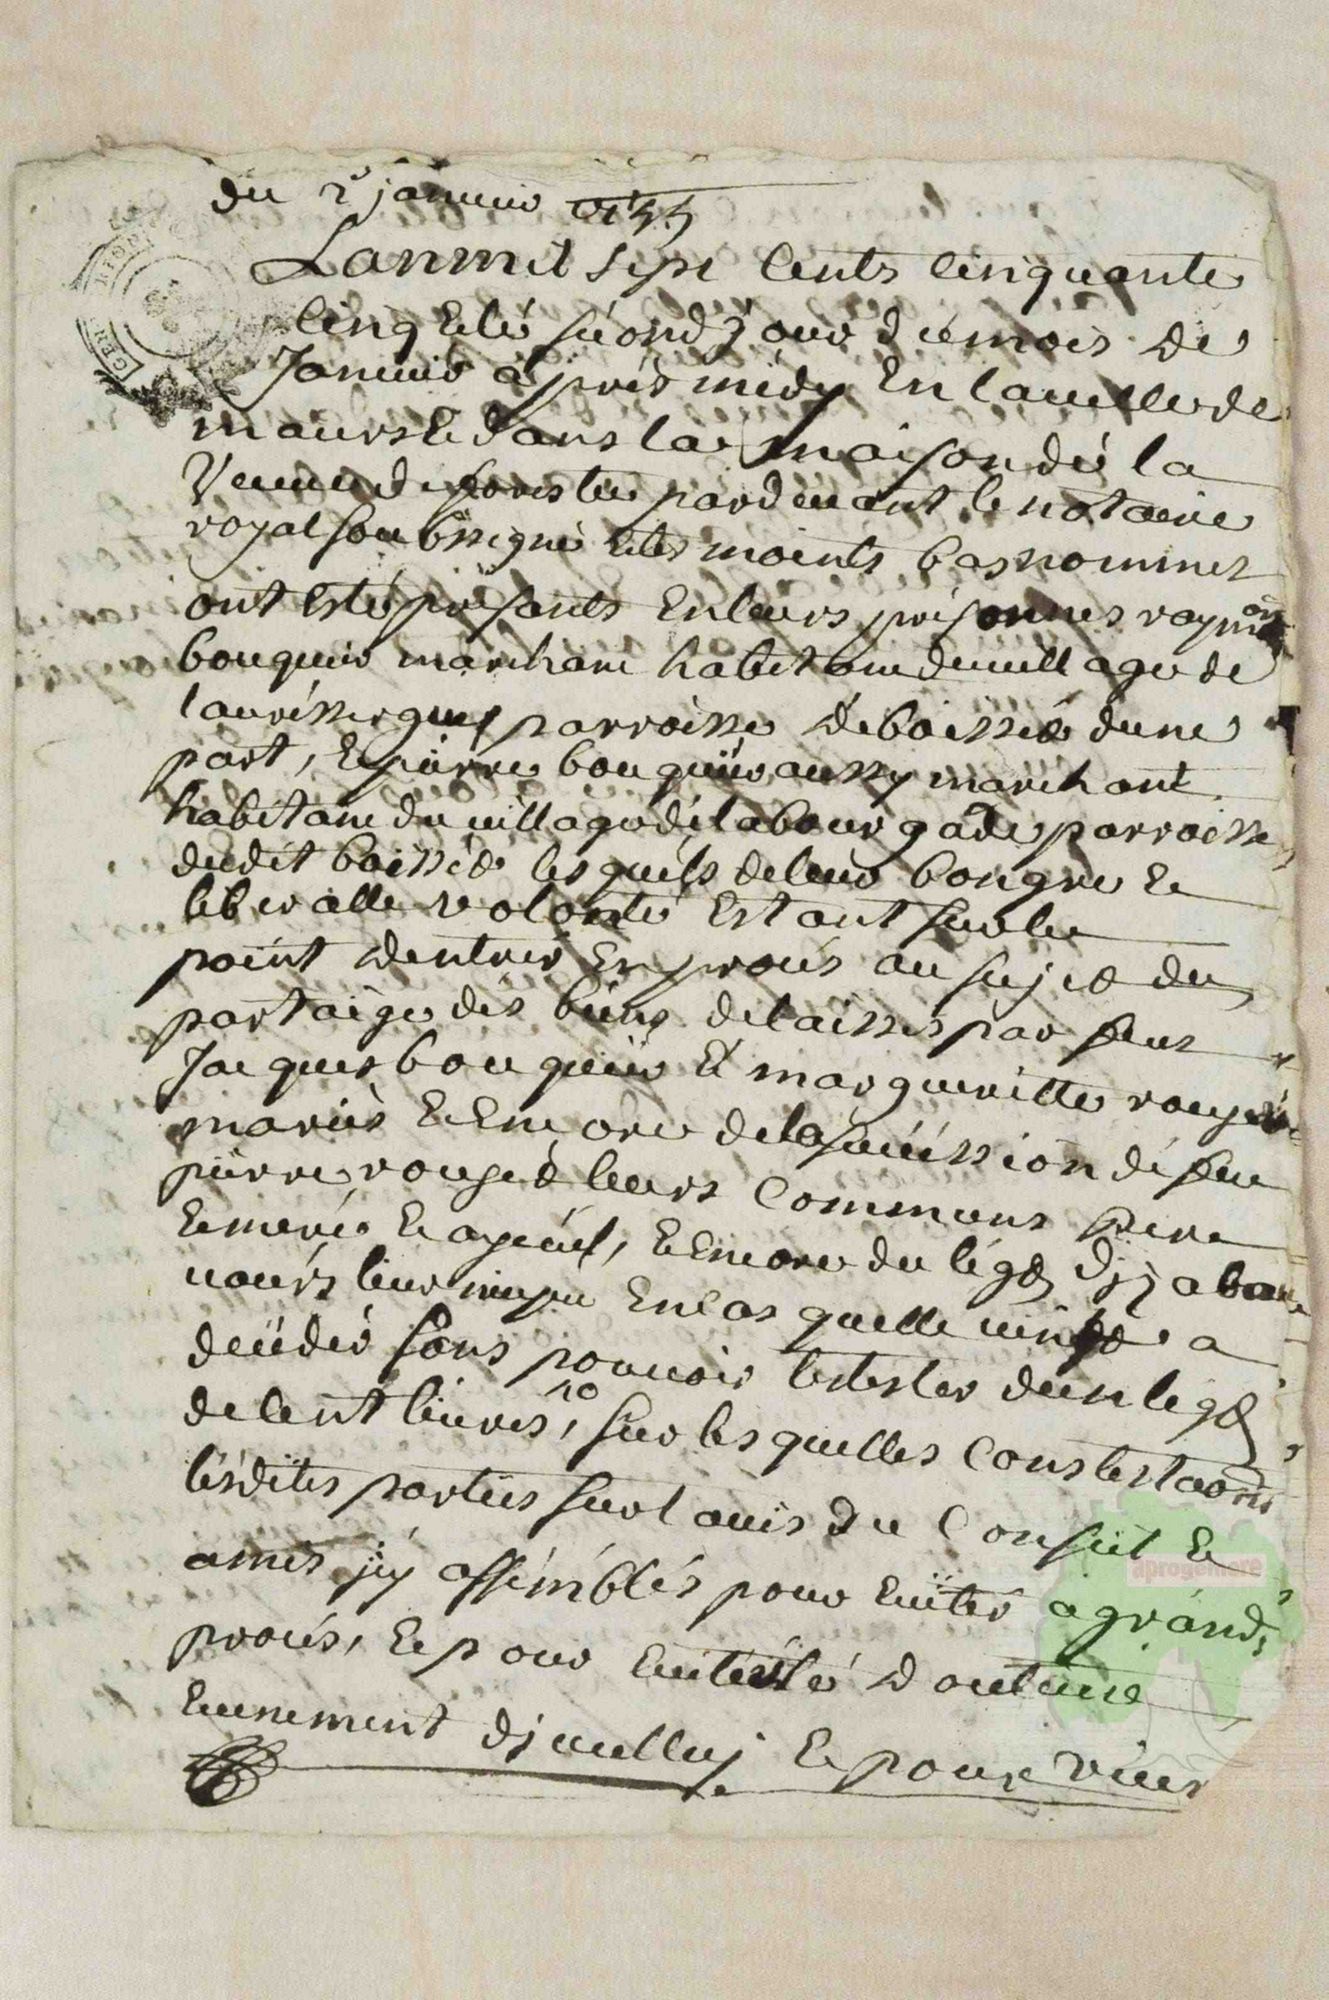 du 2e janvier 1755
Lanmil sept cents cinquante
cinq et le second jour du mois de
Janvier apres midy en la ville de
maurs et dans la maison de la
veuve de forestie pardevant le notaire
royal soubssigne et tesmoints bas nommes
ont esté présants en leurs personnes raymon
bouquier marchant habitant du village de
parroisse de boisset dune
part, et pierre bouquier aussy marchant
habitant du village de la bourgade parroisse
dudit boisset lesquels de leur bon gre et
liberalle volonté estant sur le
point dentrer en procés au sujet du
partaige des biens delaisses par feus
Jacques bouquier et margueritte rouget
mariés et encore de la sucession de feu
pierre rouget leurs communs pere
et ayeul, et encore du légat
en cas quelle vinse a
decider sans pouvoir tester dun légat
de cent livres, sur lesquelles contestaons
lesdites parties sur lavis du conseil et
amis jcy assémblés pour éviter a grands
procés, et pour
evenement dicelluy et pour